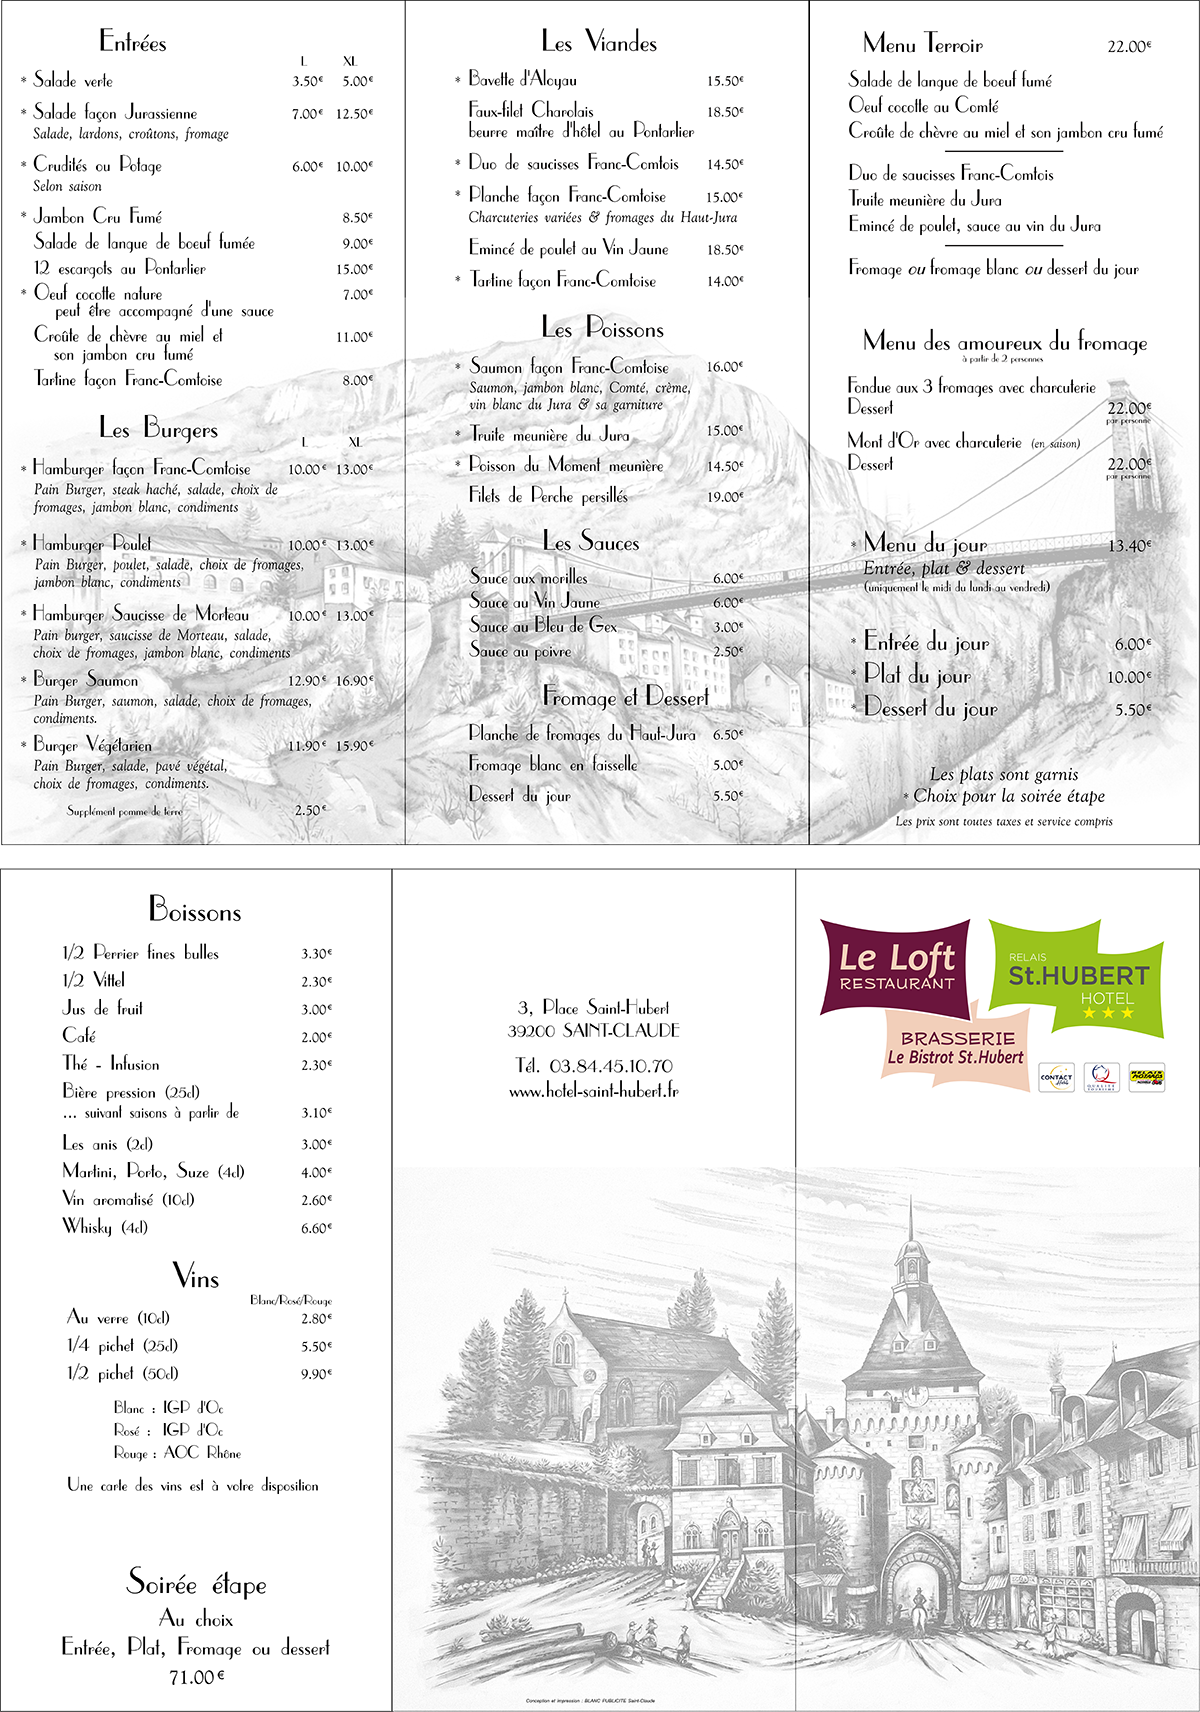 Entrées
L XL
* Salade verte 3.50€ 5.00€
* Salade façon Jurassienne 7.00€ 12.50€
Salade, lardons, croûtons, fromage
* Crudités ou Potage 6.00€ 10.00€
Selon saison
* Jambon Cru Fumé 8.50€
Salade de langue de boeuf fumée 9.00€
12 escargots au Pontarlier 15.00€
* Oeuf cocotte nature 7.00€
peut être accompagné d'une sauce
Croûte de chèvre au miel et 11.00€
son jambon cru fumé
Tartine façon Franc-Comtoise 8.00€
Les Burgers
L XL
* Hamburger façon Franc-Comtoise 10.00€ 13.00€
Pain Burger, steak haché, salade, choix de
fromages, jambon blanc, condiments
* Hamburger Poulet 10.00€ 13.00€
Pain Burger, poulet, salade, choix de fromages,
jambon blanc, condiments
* Hamburger Saucisse de Morteau 10.00€ 13.00€
Pain burger, saucisse de Morteau, salade,
choix de fromages, jambon blanc, condiments
* Burger Saumon 12.90€ 16.90€
Pain Burger, saumon, salade, choix de fromages,
condiments.
* Burger Végétarien 11.90€ 15.90€
Pain Burger, salade, pavé végétal,
choix de fromages, condiments.
Supplément pomme de terre 2.50€
Les Viandes
* Bavette d'Aloyau 15.50€
Faux-filet Charolais 18.50€
beurre maître d'hôtel au Pontarlier
* Duo de saucisses Franc-Comtois 14.50€
* Planche façon Franc-Comtoise 15.00€
Charcuteries variées & fromages du Haut-Jura
Emincé de poulet au Vin Jaune 18.50€
* Tartine façon Franc-Comtoise 14.00€
Les Poissons
* Saumon façon Franc-Comtoise 16.00€
Saumon, jambon blanc, Comté, crème,
vin blanc du Jura & sa garniture
* Truite meunière du Jura 15.00€
* Poisson du Moment meunière 14.50€
Filets de Perche persillés 19.00€
Les Sauces
Sauce aux morilles 6.00€
Sauce au Vin Jaune 6.00€
Sauce au Bleu de Gex 3.00€
Sauce au poivre 2.50€
Fromage et Dessert
Planche de fromages du Haut-Jura 6.50€
Fromage blanc en faisselle 5.00€
Dessert du jour 5.50€
Menu Terroir 22.00€
Salade de langue de boeuf fumé
Oeuf cocotte au Comté
Croûte de chèvre au miel et son jambon cru fumé
Duo de saucisses Franc-Comtois
Truite meunière du Jura
Emincé de poulet, sauce au vin du Jura
Fromage ou fromage blanc ou dessert du jour
Menu des amoureux du fromage
à partir de 2 personnes
Fondue aux 3 fromages avec charcuterie
Dessert 22.00€
par personne
Mont d'Or avec charcuterie (en saison)
Dessert 22.00€
par personne
* Menu du jour 13.40€
Entrée, plat & dessert
(uniquement le midi du lundi au vendredi)
* Entrée du jour 6.00€
* Plat du jour 10.00€
* Dessert du jour 5.50€
Les plats sont garnis
* Choix pour la soirée étape
Les prix sont toutes taxes et service compris
Boissons
1/2 Perrier fines bulles 3.30€
1/2 Vittel 2.30€
Jus de fruit 3.00€
Café 2.00€
Thé - Infusion 2.30€
Bière pression (25cl)
... suivant saisons à partir de 3.10€
Les anis (2cl) 3.00€
Martini, Porto, Suze (4cl) 4.00€
Vin aromalisé (10cl) 2.60€
Whisky (4cl) 6.60€
Vins
Blanc/Rosé/Rouge
Au verre (10cl) 2.80€
1/4 pichet (25cl) 5.50€
1/2 pichet (50cl) 9.90€
Blanc : IGP d'Oc
Rosé : IGP d'Oc
Rouge : AOC Rhône
Une carte des vins est à votre disposition
Soirée étape
Au choix
Entrée, Plat, Fromage ou dessert
71.00€
3, Place Saint-Hubert
39200 SAINT-CLAUDE
Tél. 03.84.45.10.70
www.hotel-saint-hubert.fr
Conception et impression : BLANC PUBLICITE Saint-Claude
Le Loft
RESTAURANT
RELAIS
St.HUBERT
HOTEL
BRASSERIE
Le Bistrot St.Hubert
CONTACT
Hôtels
QUALITÉ
TOURISME
RELAIS
MOTARDS